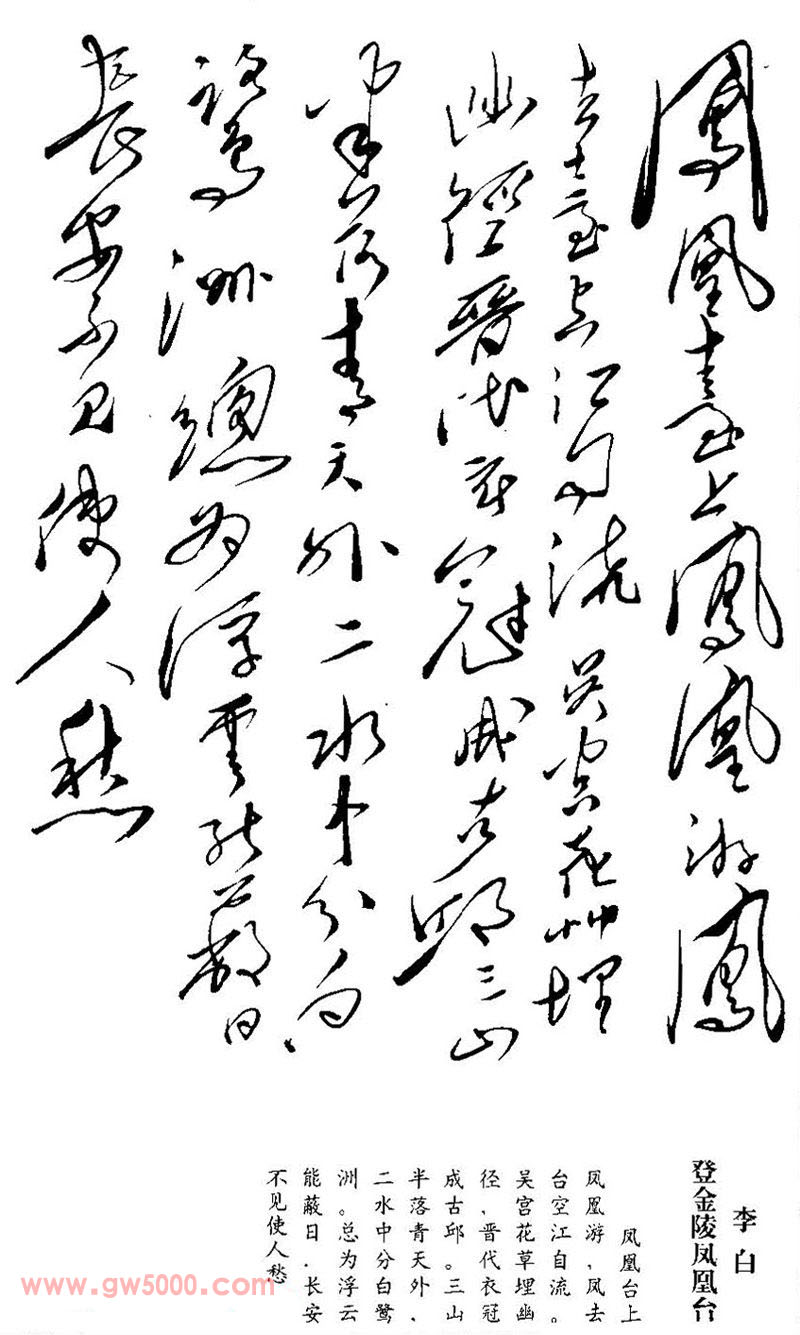 鳳凰臺上鳳凰游鳳
去臺空江自流吴宫花草埋
幽徑晋代衣冠成古邱三山
半落青天外二水中分白
鷺洲總为浮雲能蔽日
長安不见使人愁
李白
登金陵凤凰台
凤凰台上
凤凰游、凤去
台空江自流。
吴宫花草埋幽
径、晋代衣冠
成古邱。三山
半落青天外、
二水中分白鹭
洲。总为浮云
能蔽日.长安
不见使人愁
www.gw5000.com